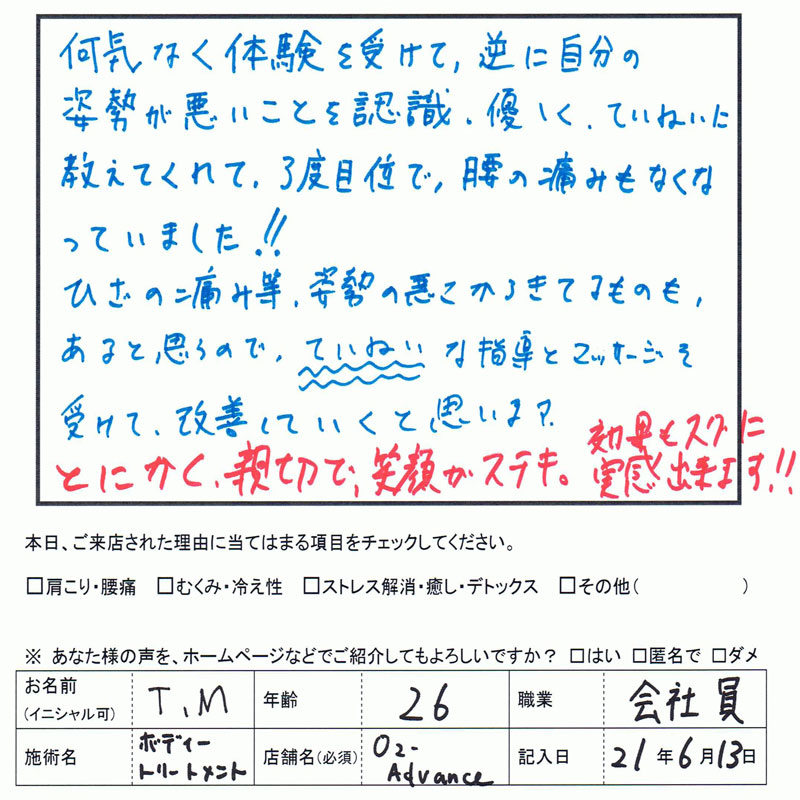 何気なく体験を受けて、逆に自分の
姿勢が悪いことを認識、優しく、ていねいに
教えてくれて、3度目位で、腰の痛みもなくな
っていました!!
ひざの痛み等、姿勢の悪さからきてるものも、
あると思うので、ていねいな指導とマッサージを
受けて、改善していくと思います。
とにかく、親切で、笑顔がステキ。
効果もスグに
実感出来ます!!
本日、ご来店された理由に当てはまる項目をチェックしてください。
□肩こり・腰痛 □むくみ・冷え性 □ストレス解消・癒し・デトックス □その他( )
※ あなた様の声を、ホームページなどでご紹介してもよろしいですか? □はい □匿名で □ダメ
お名前(イニシャル可) T,M 年齢 26 職業 会社員
施術名 ボディートリートメント 店舗名(必須) O2-Advance 記入日 21年6月13日